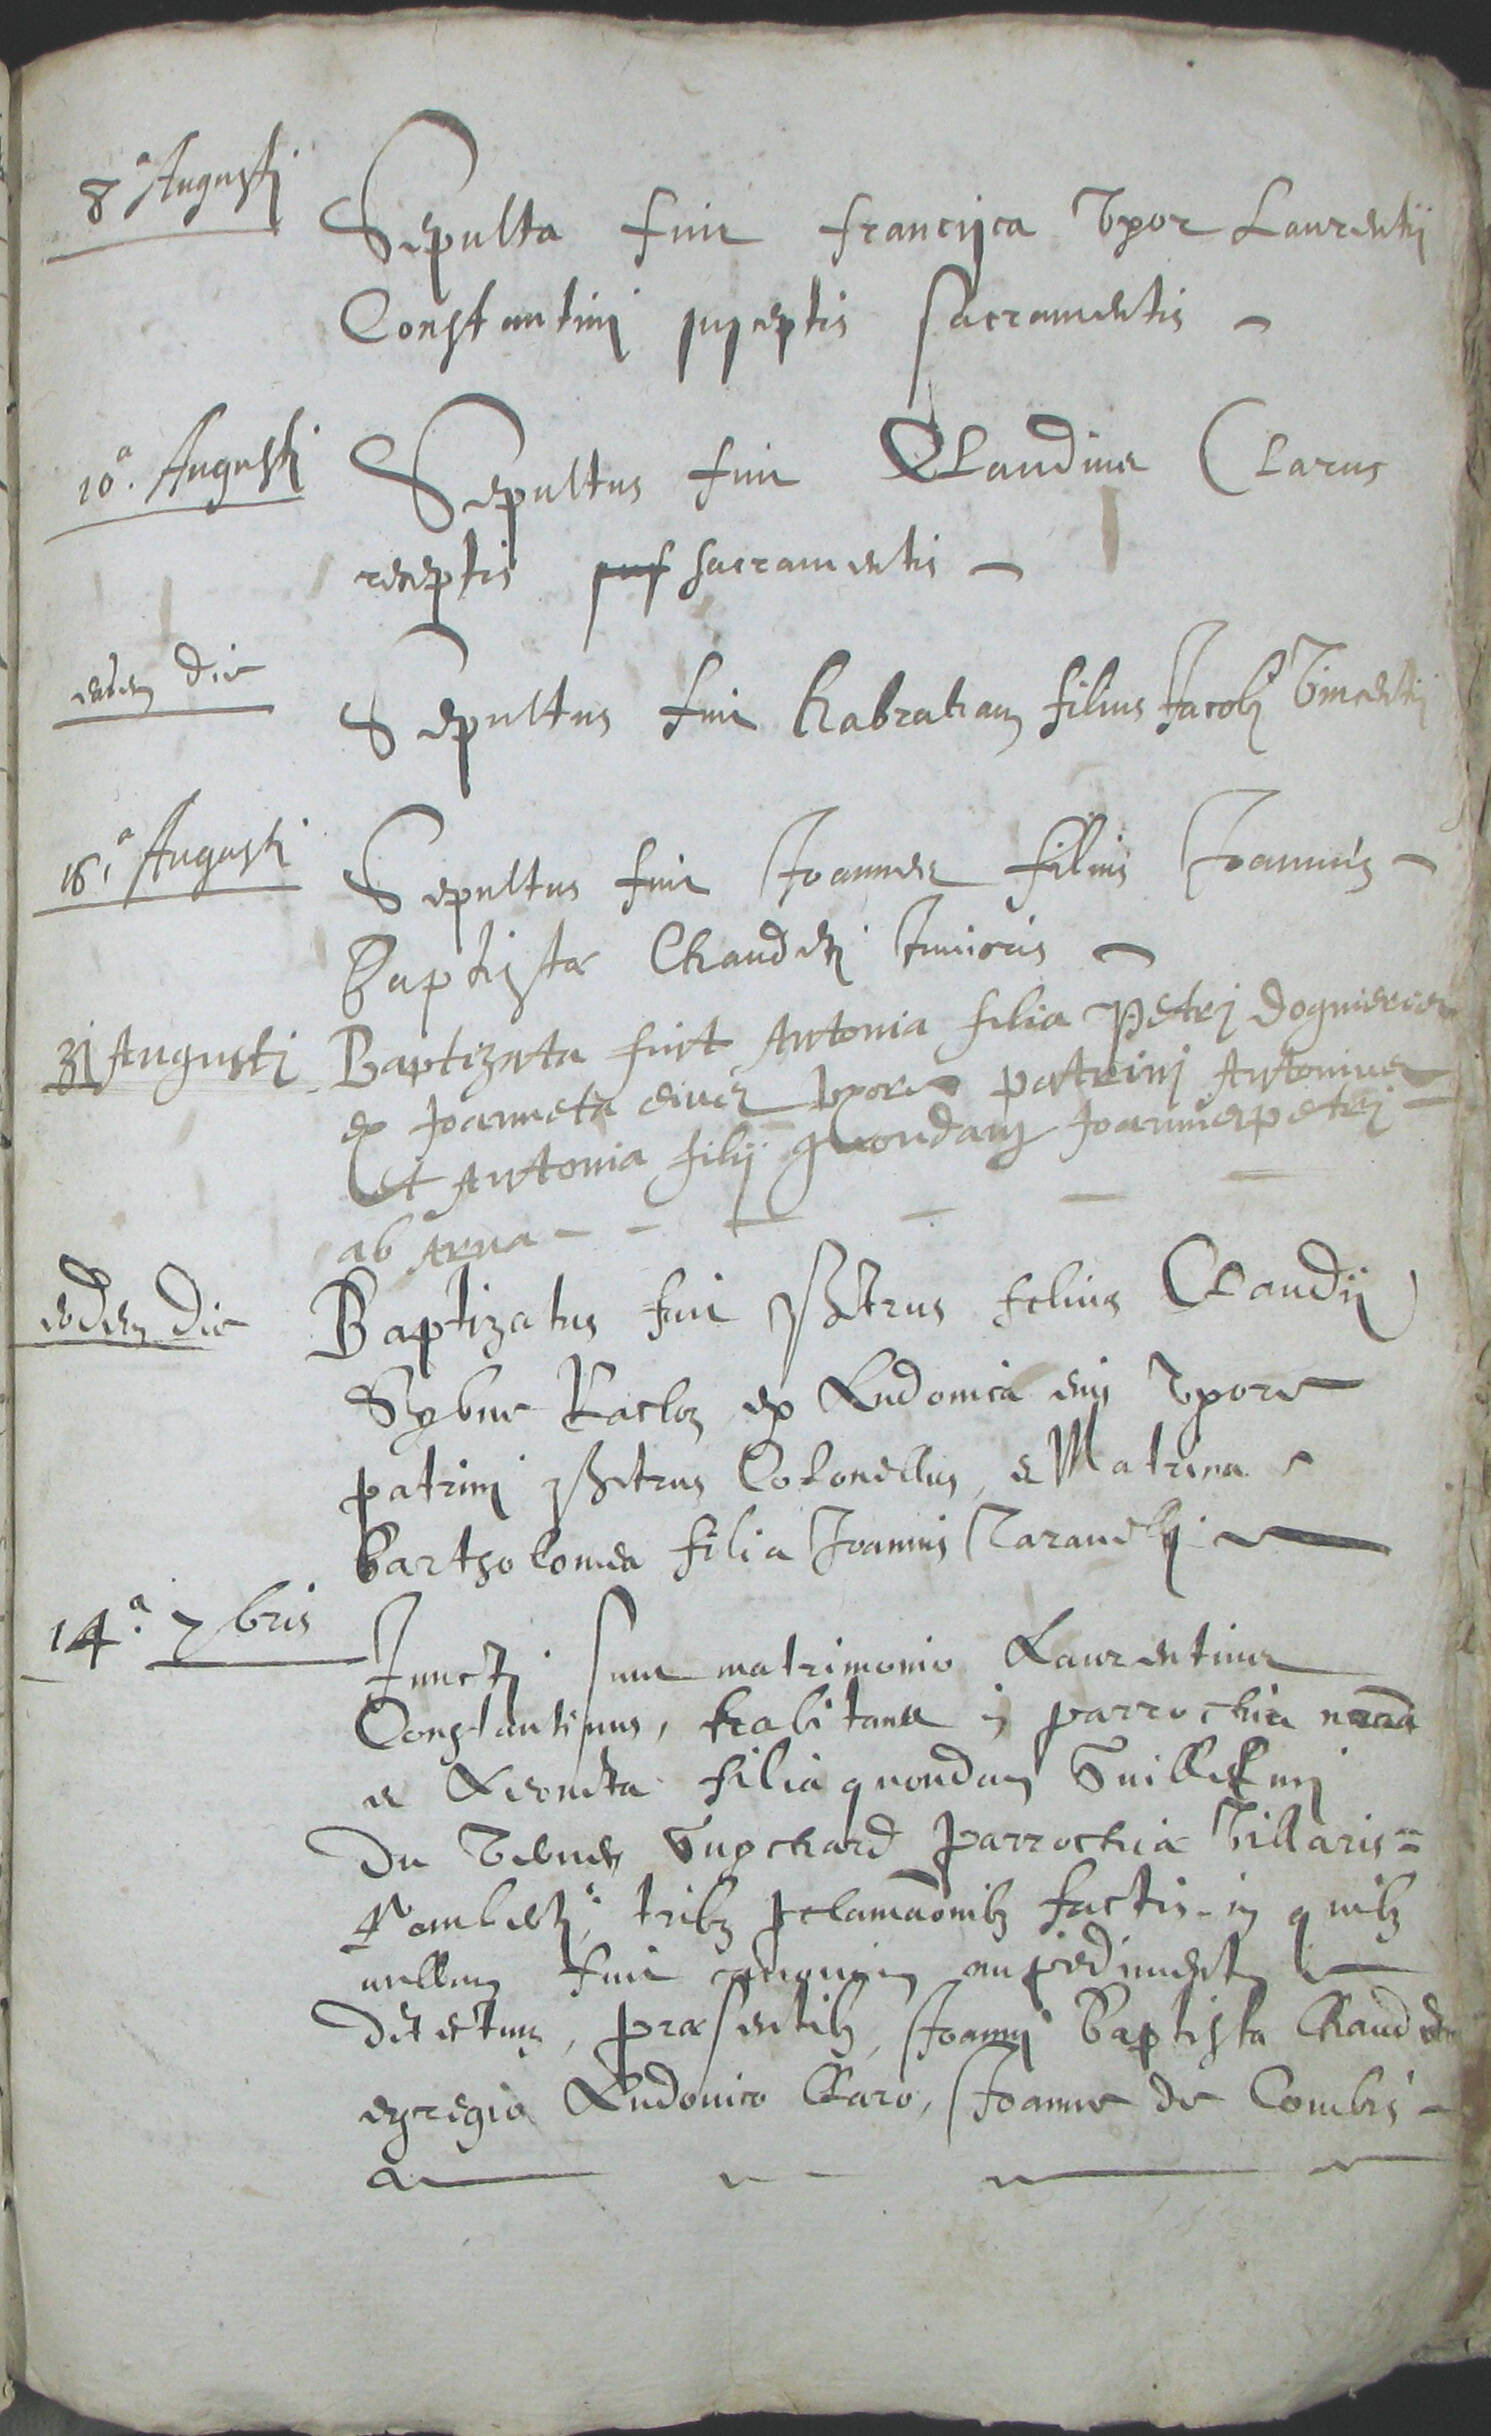 8ª Augusti
Sepulta fuit francisca Vxor Laurentij
Constantini susceptis sacramentis
10ª. Augusti
Sepultus fuit Claudius Clarus
receptis suf sacramentis
eadem die
Sepultus fuit habraham filius Jacobi Vincentij
16ª Augusti
Sepultus fuit Joannes filius Joannis
Baptistæ Chaudeti Junioris
31 Augusti
Baptizata fuit Antonia filia Petri
ex Joanneta eius vxore patrini Antonius
et Antonia filij quondam Joannis petri
ab Arna
eadem die
Baptizatus fuit petrus filius Claudij
ex Ludovica eius Vxore
patrini petrus Colonellus, et Matrina
Bartholomea filia Joannis
14ª. 7bris
Juncti sunt matrimonio Laurentius
Constantinus, habitans in parrochia
et Leoneta filia quondam Guillelmi
Du parrochiæ Villaris=
tribz factis in quibz
nullum fuit canonicum impedimentum
Detectum, præsentibz, Joanni Baptista Chaudeto
egregio Ludovico Claro, Joanne de Combis